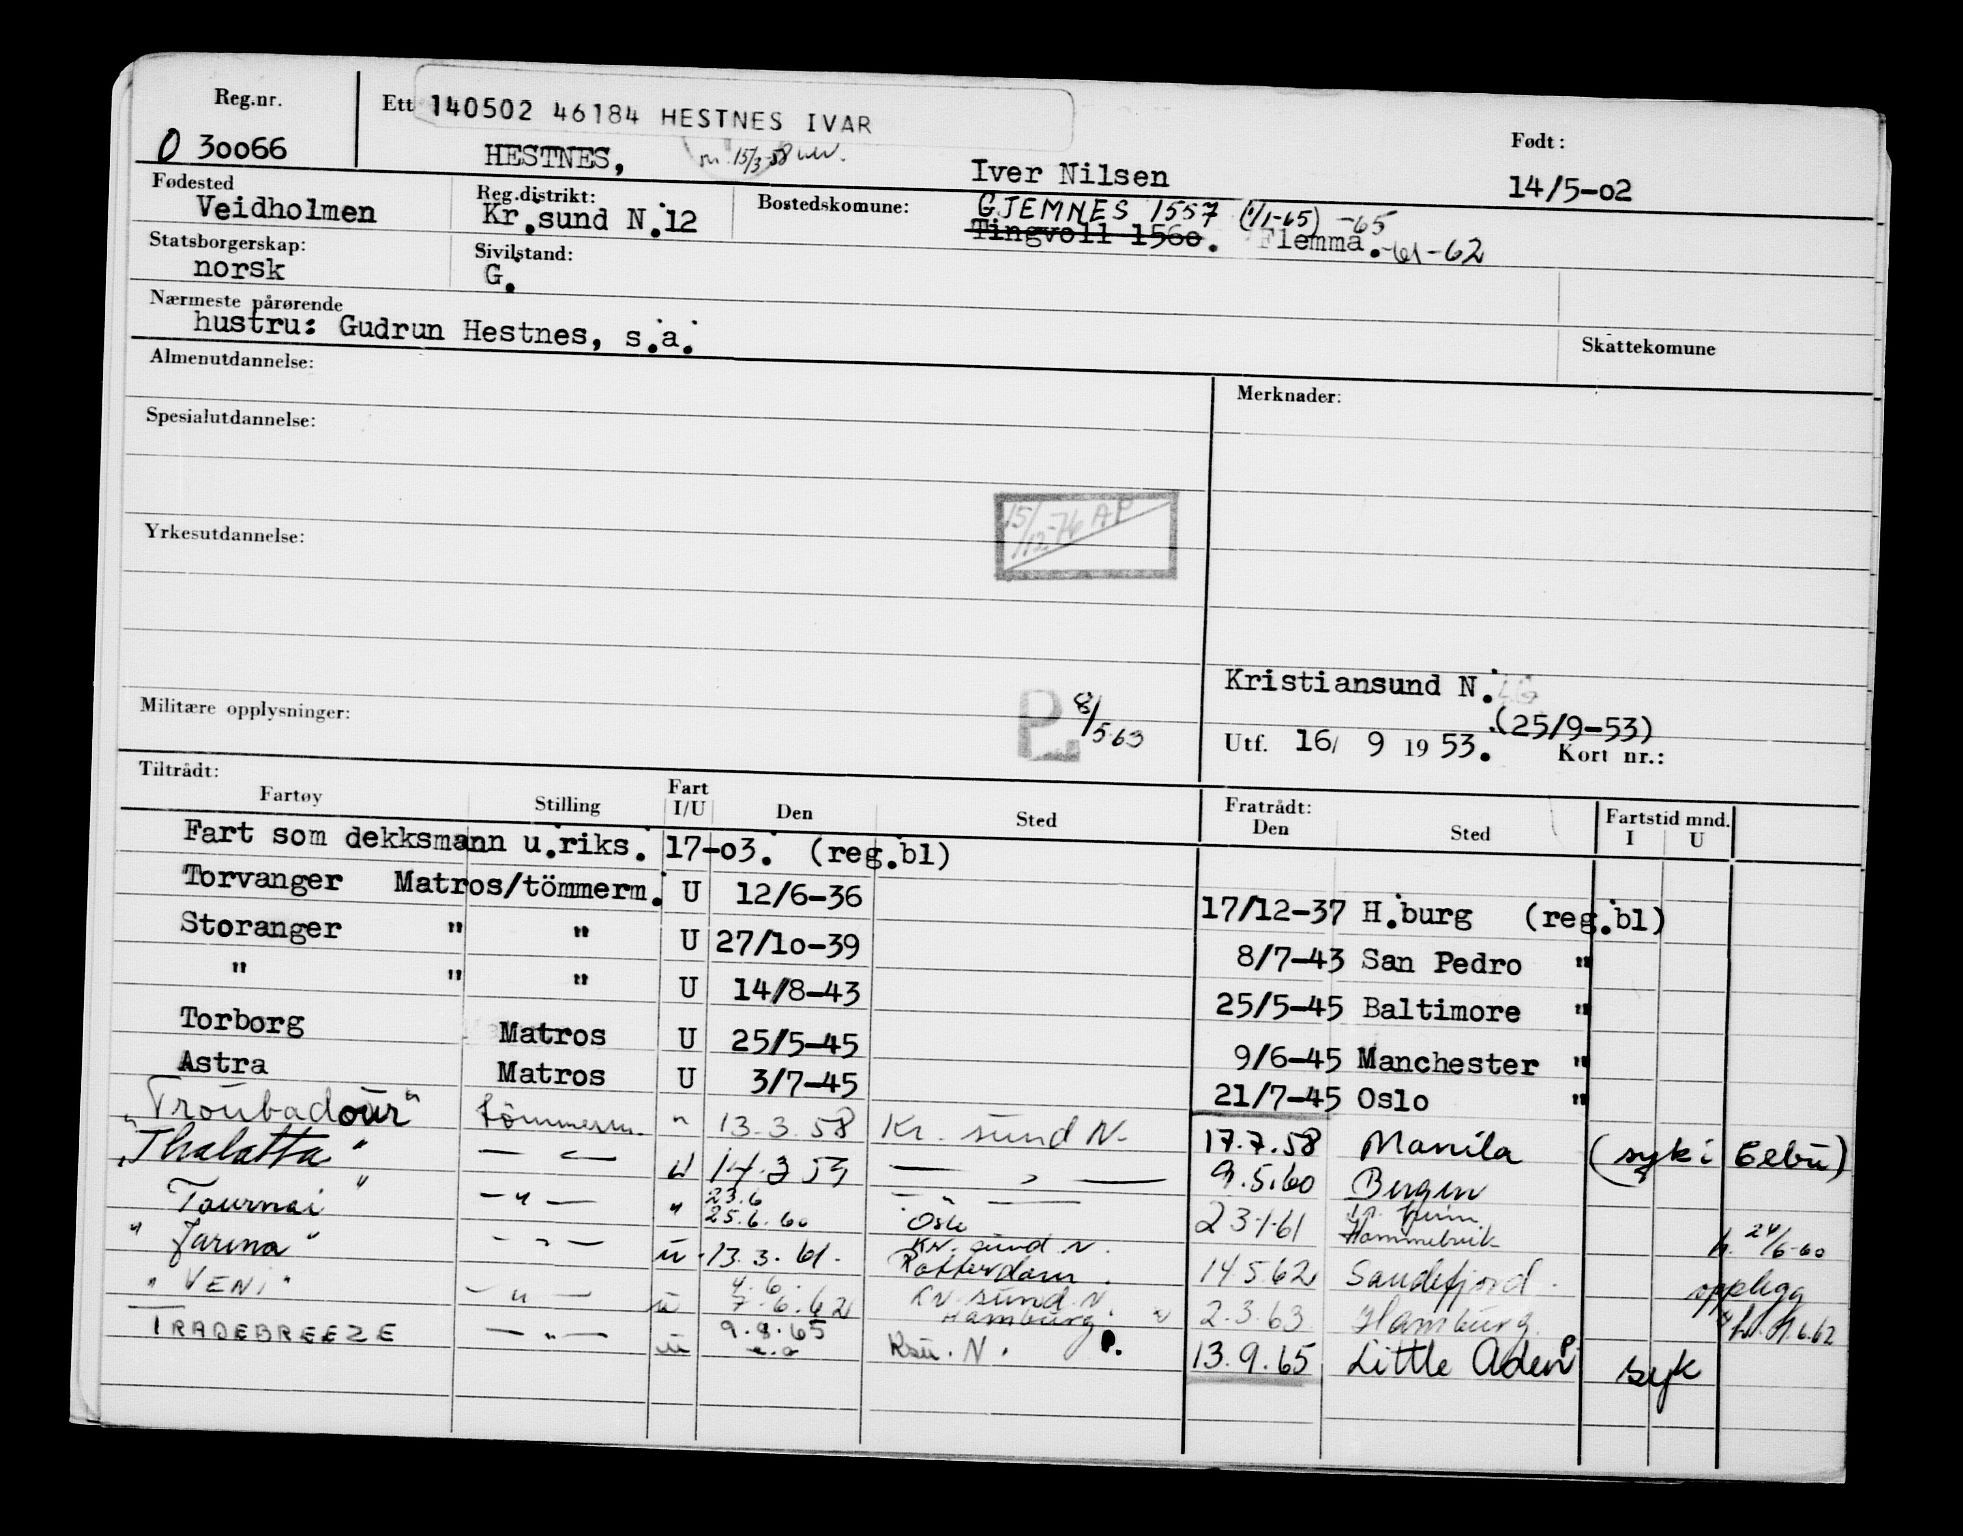 Reg.nr.
Ett 140502 46184 HESTNES IVAR
Født:
O 30066
HESTNES, 15/3-58
Iver Nilsen
14/5-02
Fødested
Veidholmen
Reg.distrikt:
Kr.sund N.12
Bostedskomune:
GJEMNES 1557 (1/1-65) -65
Tingvoll 1560. Flemma. -61-62
Statsborgerskap:
norsk
Sivilstand:
G.
Nærmeste pårørende
hustru: Gudrun Hestnes, s.a.
Skattekomune
Almenutdannelse:
Merknader:
Spesialutdannelse:
15/12-76 AP
Yrkesutdannelse:
Kristiansund N.
(25/9-53)
Militære opplysninger:
P 8/5.63
Utf. 16/ 9 1953. Kort nr.:
Tiltrådt:
Fartøy Stilling Fart I/U Den Sted Fratrådt: Den Sted Fartstid mnd. I U
Fart som dekksmann u.riks. 17-03. (reg.bl)
Torvanger Matros/tömmerm. U 12/6-36 17/12-37 H.burg (reg.bl)
Storanger " " U 27/10-39 8/7-43 San Pedro "
" " " U 14/8-43 25/5-45 Baltimore "
Torborg Matros U 25/5-45 9/6-45 Manchester "
Astra Matros U 3/7-45 21/7-45 Oslo "
"Troubadour" tömmerm. " 13.3.58 Kr. sund N. 17.7.58 Manila (syk i Cebu)
"Thalatta" — " — U 14.3 59 — " — 9.5.60 Bergen
Tournai " — " — " 23.6 25.6.60 Oslo 23-1-61 Hammelbuk h. 24/6-60
"Jarina" — " — u 13.3.61. Kr. sund N. Rotterdam. 14.5.62 Sandefjord. opplegg
"VENI" — " — u 4.6. 7.6.62 Kr. sund. N. Hamburg. 2.3.63 Hamburg.
TRADEBREEZE — " — u 9.8.65 Ksu. N. P. 13.9.65 Little Aden syk